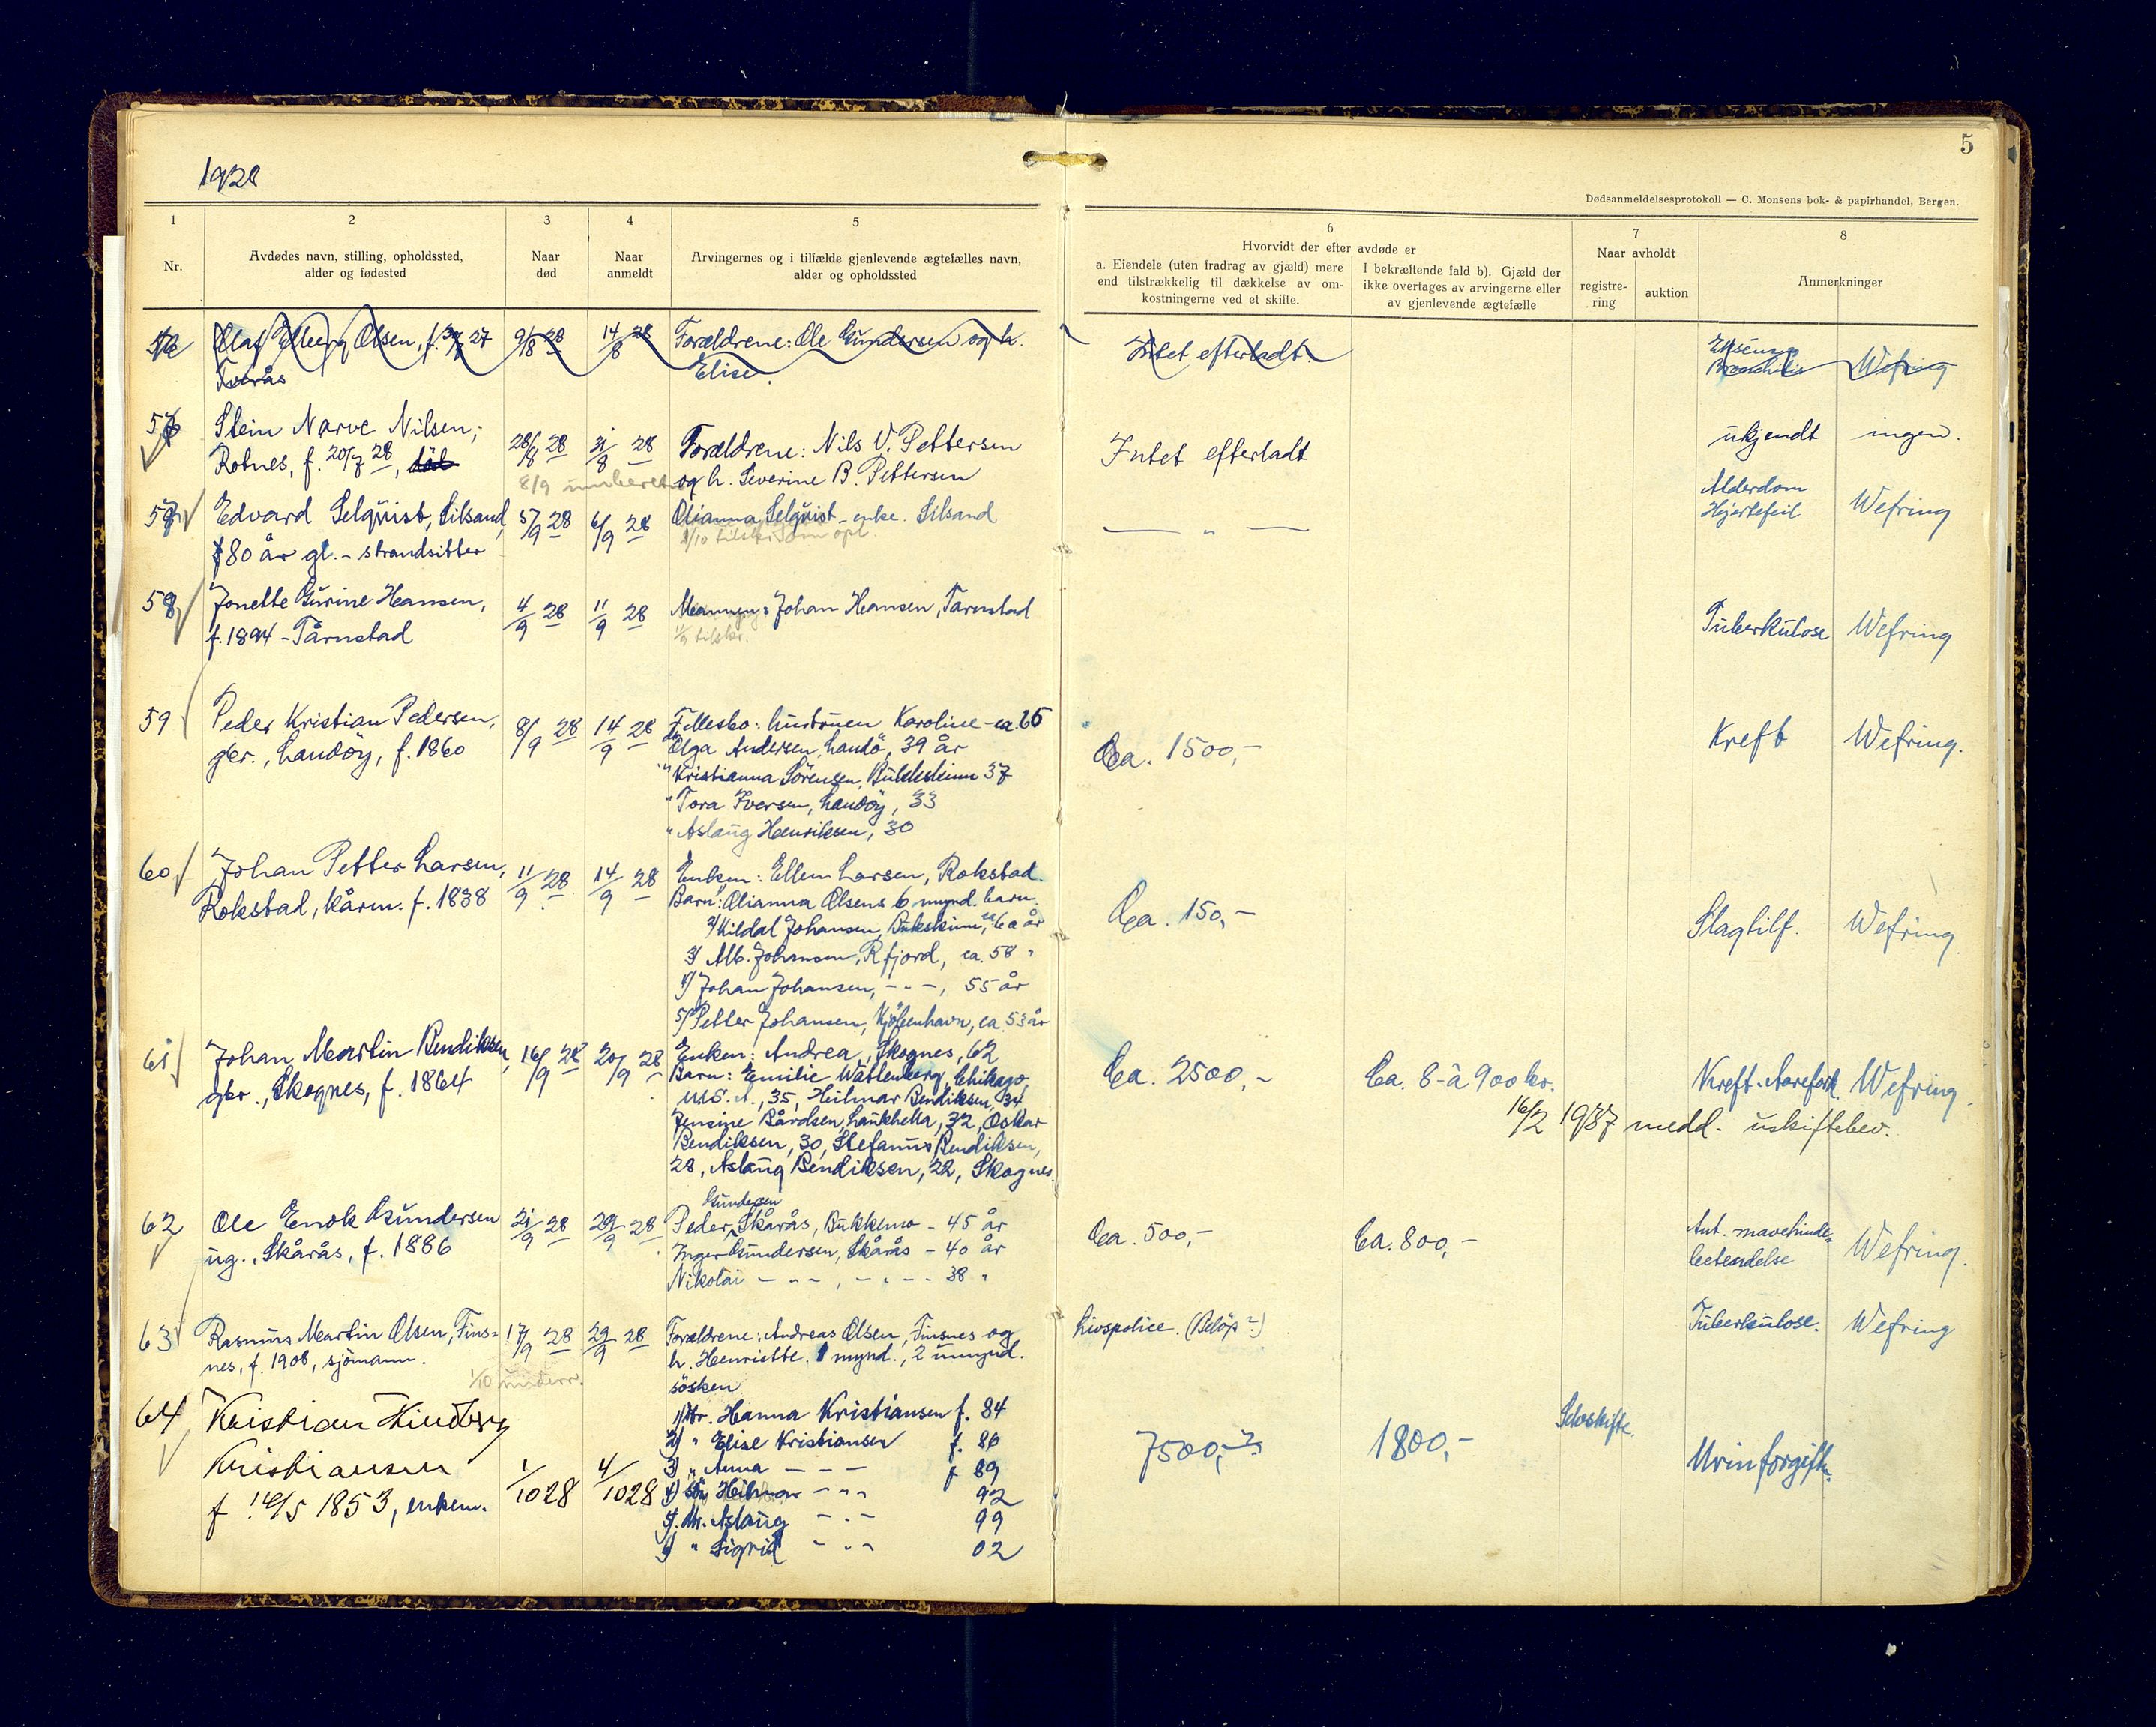 1928
5
Dødsanmeldelsesprotokoll — C. Monsens bok- & papirhandel, Bergen.
1
Nr.
2
Avdødes navn, stilling, opholdssted,
alder og fødested
3
Naar
død
4
Naar
anmeldt
5
Arvingernes og i tilfælde gjenlevende ægtefælles navn,
alder og opholdssted
6
Hvorvidt der efter avdøde er
a. Eiendele (uten fradrag av gjæld) mere
end tilstrækkelig til dækkelse av om-
kostningerne ved et skifte.
I bekræftende fald b). Gjæld der
ikke overtages av arvingerne eller
av gjenlevende ægtefælle
7
Naar avholdt
registre-
ring
auktion
8
Anmerkninger
Olaf Elberg Olsen, f. 27
Tverås
9/8 28
14/8 28
Forældrene: Ole Gundersen og h.
Elise.
Intet efterladt.
Bronchitis
Wefring
56
Stein Narve Nilsen,
Rotnes, f. 20/7 28,
28/8 28
31/8 28
8/9
Forældrene: Nils V. Pettersen
og h. Severine B. Pettersen
Intet efterladt
ukjendt
ingen.
57
Edvard Selquist, Silsand,
80 år gl. - strandsitter
5/9 28
6/9 28
Olianna Selquist - enke. Silsand
— " —
Alderdom
Hjertefeil
Wefring
58
Jonette Gurine Hansen,
f. 1894 - Tårnstad
4/9 28
11/9 28
Mannen: Johan Hansen, Tårnstad
11/9 tilskr.
Tuberkulose
Wefring
59
Peder Kristian Pedersen,
gbr., Landøy, f. 1860
8/9 28
14/9 28
Fellesbo: hustruen Karoline - ca. 65
Olga Andersen, Landö, 39 år
" Kristianna Sörensen, Bukkskinn 37
" Tora Iversen, Landöy, 33
" Aslaug Henriksen, 30
Ca. 1500,-
Kreft
Wefring.
60
Johan Petter Larsen,
Rokstad, kårm. f. 1838
11/9 28
14/9 28
Enken: Ellen Larsen, Rokstad.
Barn: Olianna Olsens 6 mynd. barn.
2/ Hildal Johansen, Bukskinn, 60 år
3/ Alb. Johansen, Rfjord, ca. 58 "
4/ Johan Johansen, - " -, 55 år
5/ Petter Johansen, Kjöbenhavn, ca. 53 år
Ca. 150,-
Slagtilf.
Wefring
61
Johan Martin Bendiksen,
gbr., Skognes, f. 1864
16/9 28
20/9 28
Enken: Andrea, Skognes, 62
Barn: Emilie Wattenberg, Chikago,
U.S.A., 35, Hilmar Bendiksen, 34
Jensine Bårdsen, Laukhella, 32, Oskar
Bendiksen, 30, Stefanus Bendiksen,
28, Aslaug Bendiksen, 22, Skognes.
Ca. 2500,-
Ca. 8- à 900 kr.
Kreft.
Wefring.
16/2 1937 medd. uskiftebev.
62
Ole Enok Gundersen
ug., Skårås, f. 1886
21/9 28
29/9 28
Gundersen
Peder, Skårås, Bukkmo - 45 år
Inger Gundersen, Skårås - 40 år
Nikolai - " -, - " - 38 "
Ca. 500,-
Ca. 800,-
Ant. mavehinde-
betendelse
Wefring.
63
Rasmus Martin Olsen, Fins-
nes, f. 1906, sjömann.
17/9 28
29/9 28
1/10 underr.
Forældrene: Andreas Olsen, Finsnes og
h. Henriette. 1 mynd., 2 umynd.
sösken
Livspolice. (Belöp?)
Tuberkulose.
Wefring
64
Kristian Hindberg
Kristiansen
f 14/5 1853, enkem.
1/10 28
4/10 28
1) Hanna Kristiansen f. 84
2) " Elise Kristiansen f. 86
3) " Anna - - - f 89
4) Sön Hilmar - " - 92
5) Aslaug - " - 99
6) " Sigrid - " - 02
7500,-
1800,-
Selvskifte.
Urinforgiftn.